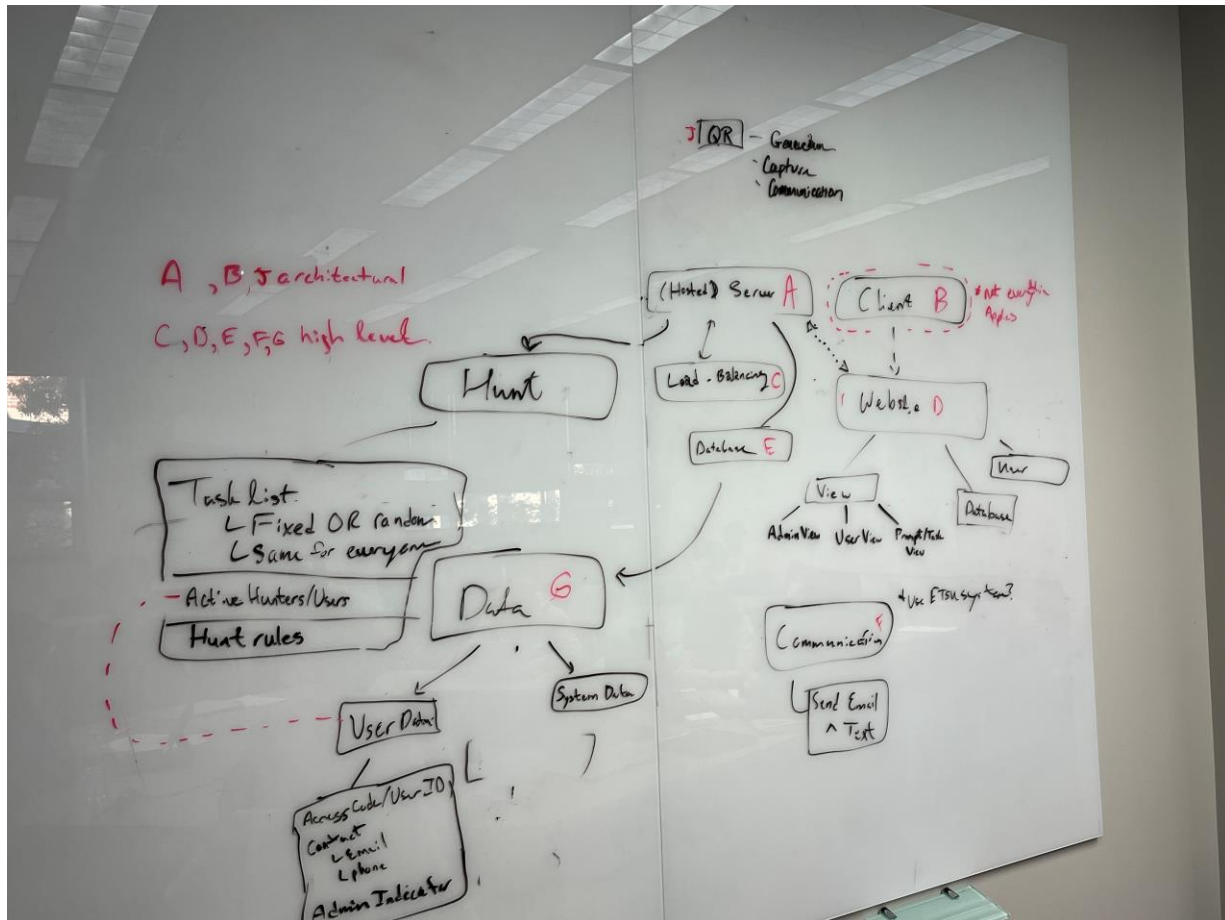 J QR - Generation
- Capture
- Communication
A, B, J architectural
C, D, E, F, G high level.
(Hosted) Server A
Client B
* not everything
Applies
Hunt
Load-Balancing C
Website D
Database E
User
Database
View
Admin View
User View
Prompt/Task
View
Task list
Fixed OR random
Same for everyone
- Active Hunters/Users
Hunt rules
Data G
* Use ETSU system?
Communication F
Send Email
^ Text
System Data
User Data
Access Code/User ID
Contact
Email
phone
Admin Indicator